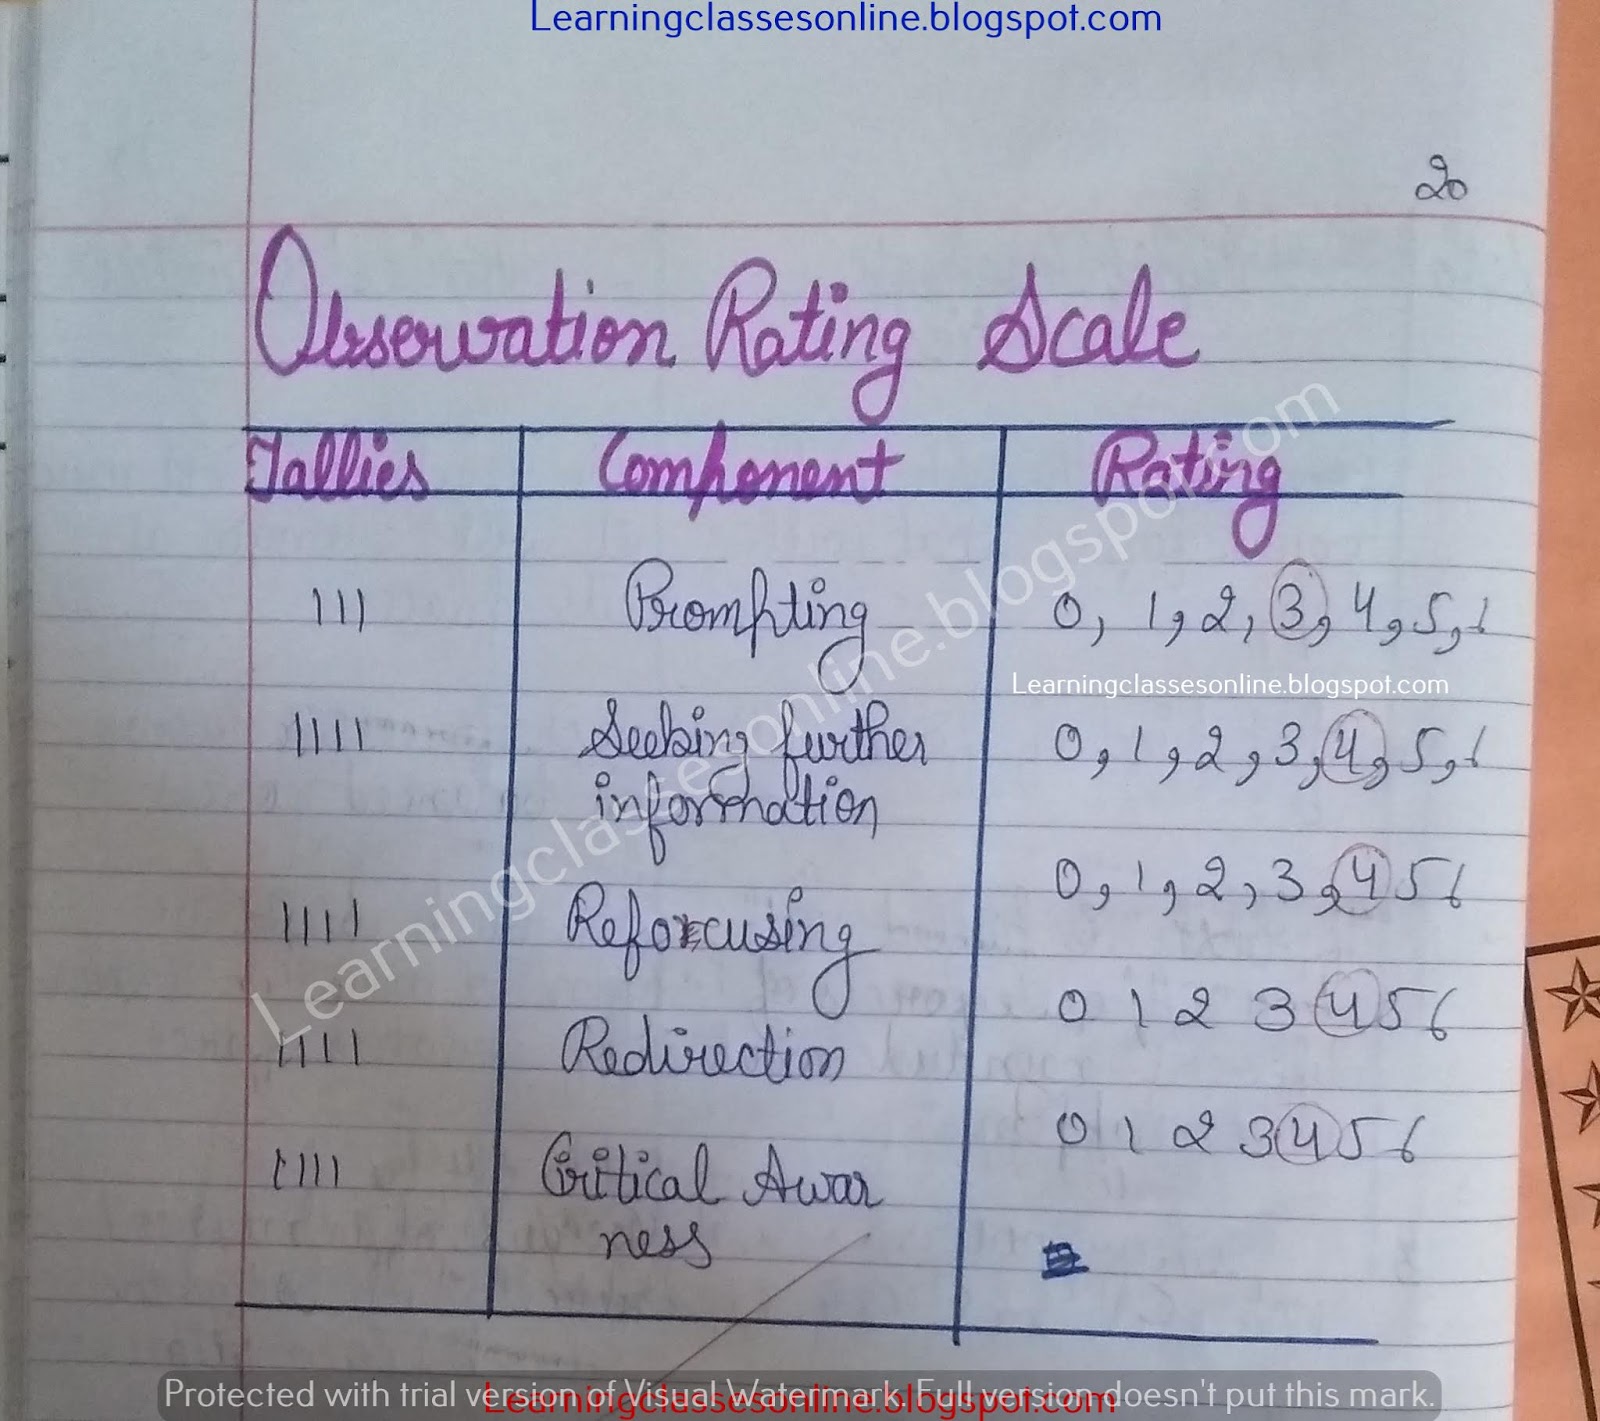 Learningclassesonline.blogspot.com
20
Observation Rating Scale
Tallies Component Rating
III Prompting 0, 1, 2, 3, 4, 5, 6
Learningclassesonline.blogspot.com
IIII Seeking further 0, 1, 2, 3, 4, 5, 6
information
0, 1, 2, 3, 4 5 6
IIII Reforcusing
0 1 2 3 4 5 6
IIII Redirection
0 1 2 3 4 5 6
IIII Critical Awar
ness
Learningclassesonline.blogspot.com
Protected with trial version of Visual Watermark. Full version doesn't put this mark.
Learningclassesonline.blogspot.com